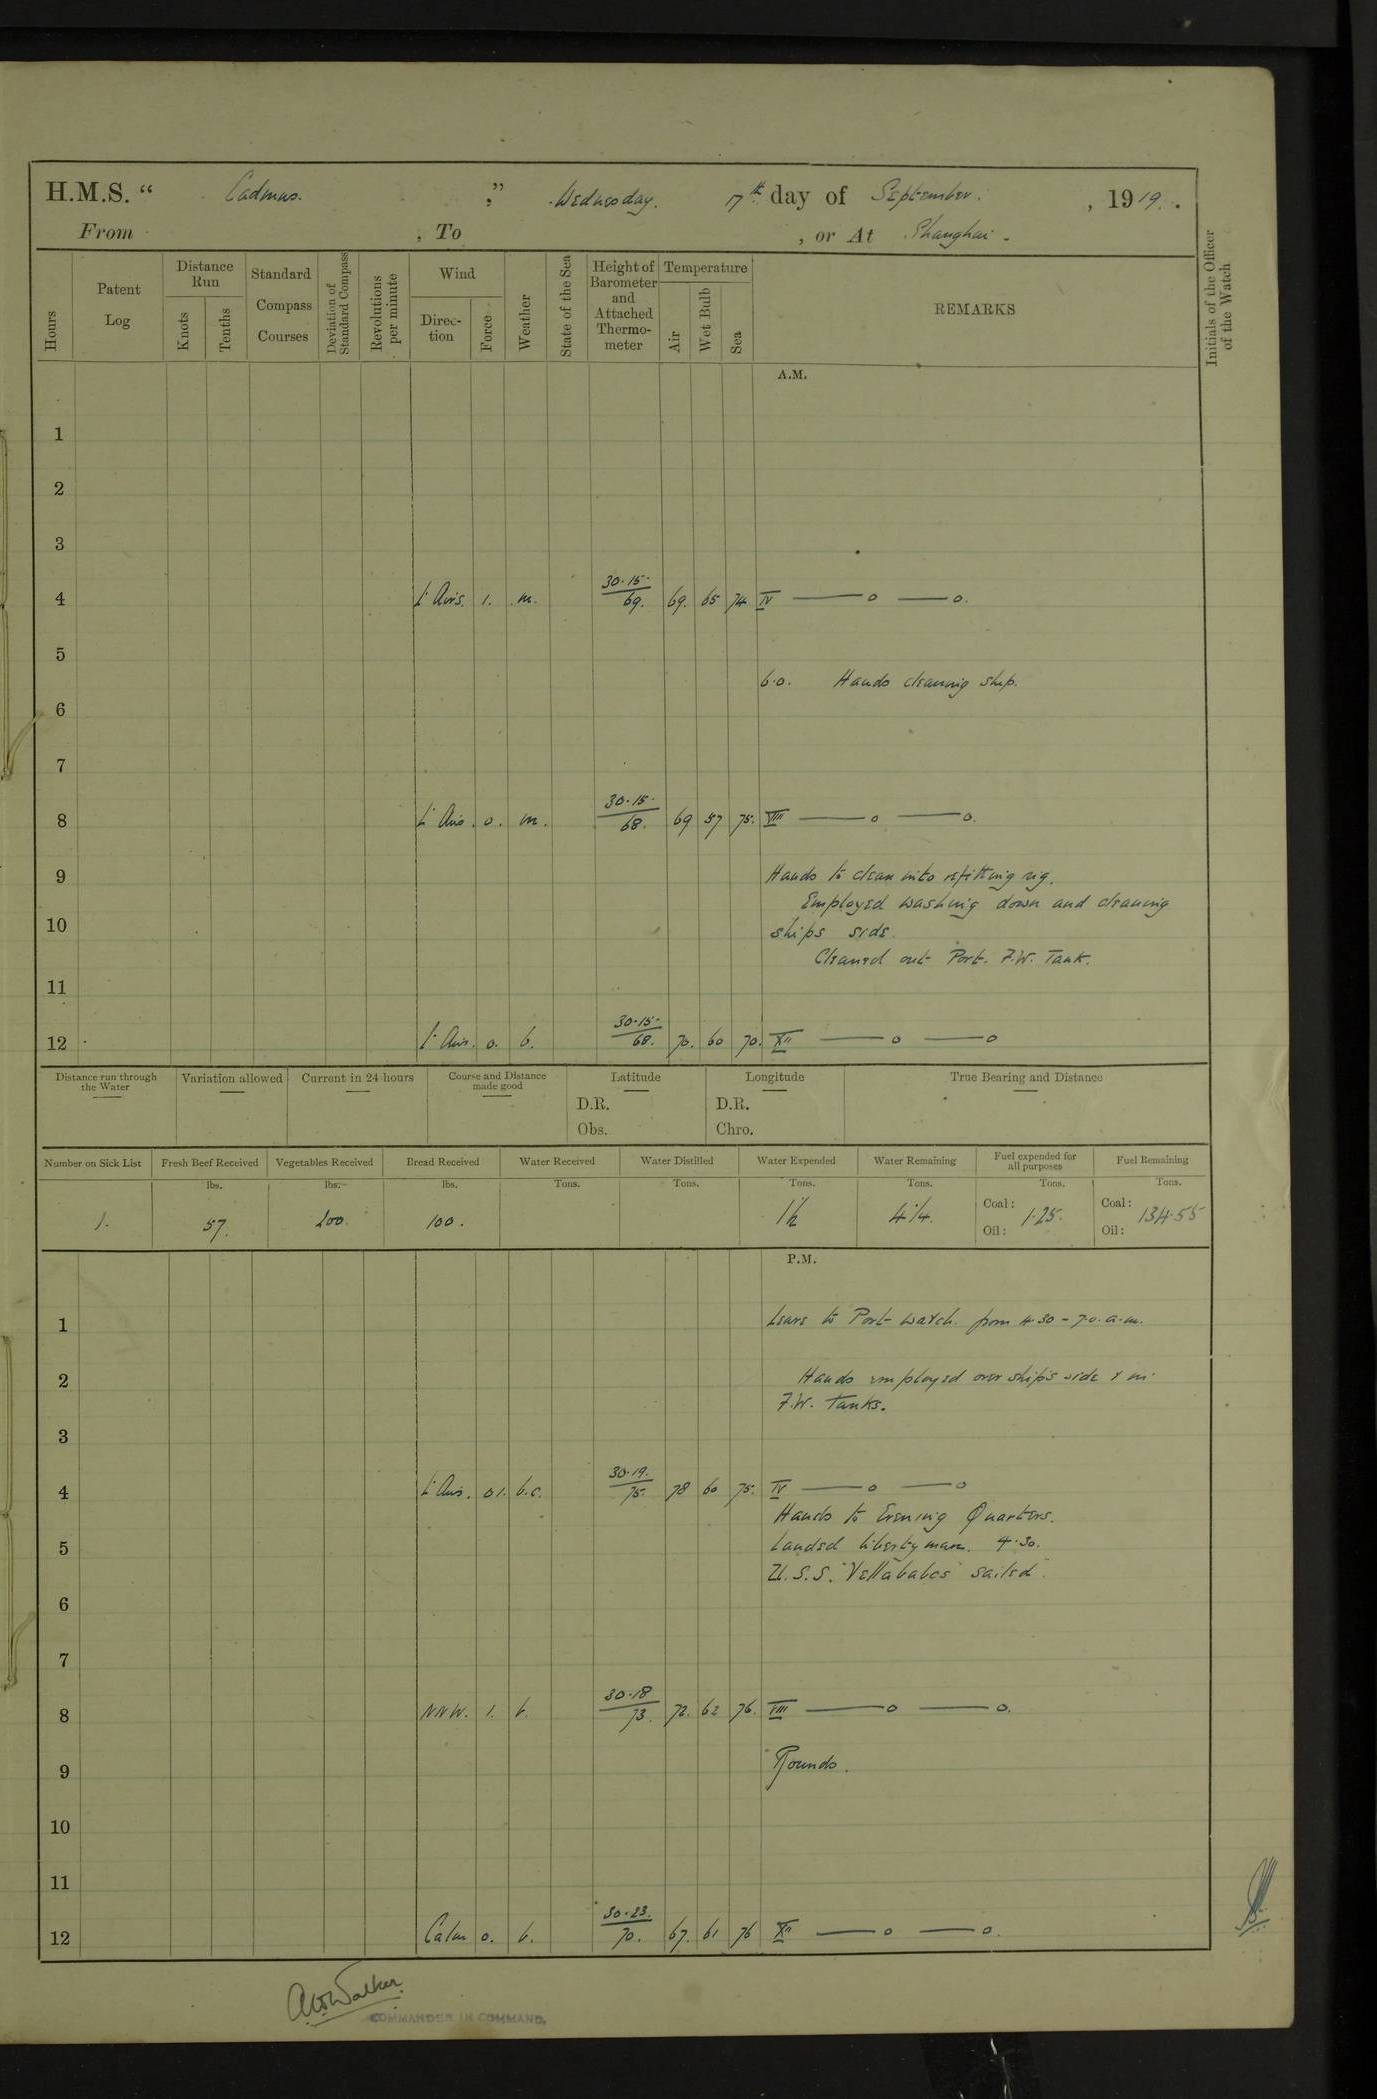 H.M.S. " Cadmus. ", Wednesday. 17th day of September. , 1919.
From , To , or At Shanghai.
Hours
Patent Log
Distance Run
Knots
Tenths
Standard Compass Courses
Deviation of Standard Compass
Revolutions per minute
Wind
Direction
Force
Weather
State of the Sea
Height of Barometer and Attached Thermometer
Temperature
Air
Wet Bulb
Sea
REMARKS
Initials of the Officer of the Watch
A.M.
1
2
3
4 Lt Airs. 1. m. 30.15. 69. 69. 65 74 IV —— o —— o.
5
6.0. Hands cleaning ship.
6
7
8 Lt Airs. 0. m. 30.15. 68. 69 57 75. VIII —— o —— o.
9 Hands to clean into refitting rig.
Employed washing down and cleaning
10 ships side.
Cleaned out Port. F.W. Tank.
11
12 Lt Airs. 0. b. 30.15. 68. 70. 60 70. XII —— o —— o
Distance run through the Water
Variation allowed
Current in 24 hours
Course and Distance made good
Latitude
D.R.
Obs.
Longitude
D.R.
Chro.
True Bearing and Distance
Number on Sick List Fresh Beef Received Vegetables Received Bread Received Water Received Water Distilled Water Expended Water Remaining Fuel expended for all purposes Fuel Remaining
lbs. lbs. lbs. Tons. Tons. Tons. Tons. Tons. Tons.
1. 57. 200 100. 1½ 41/4. Coal: 1.25. Coal: 134.55
Oil: Oil:
P.M.
1 Leave to Port watch from 4.30 - 7.0. a.m.
2 Hands employed over ships side & in
F.W. Tanks.
3
4 Lt Airs. 01. b.c. 30.19. 75. 78 60 75. IV —— o —— o
Hands to Evening Quarters.
5 Landed liberty men. 4.30.
U.S.S. sailed.
6
7
8 NNW. 1. b. 30.18 73. 72. 62 76. VIII —— o —— o.
9 Rounds.
10
11
12 Calm 0. b. 30.23. 70. 67. 61 76 XII —— o —— o.
Walker
COMMANDER IN COMMAND.